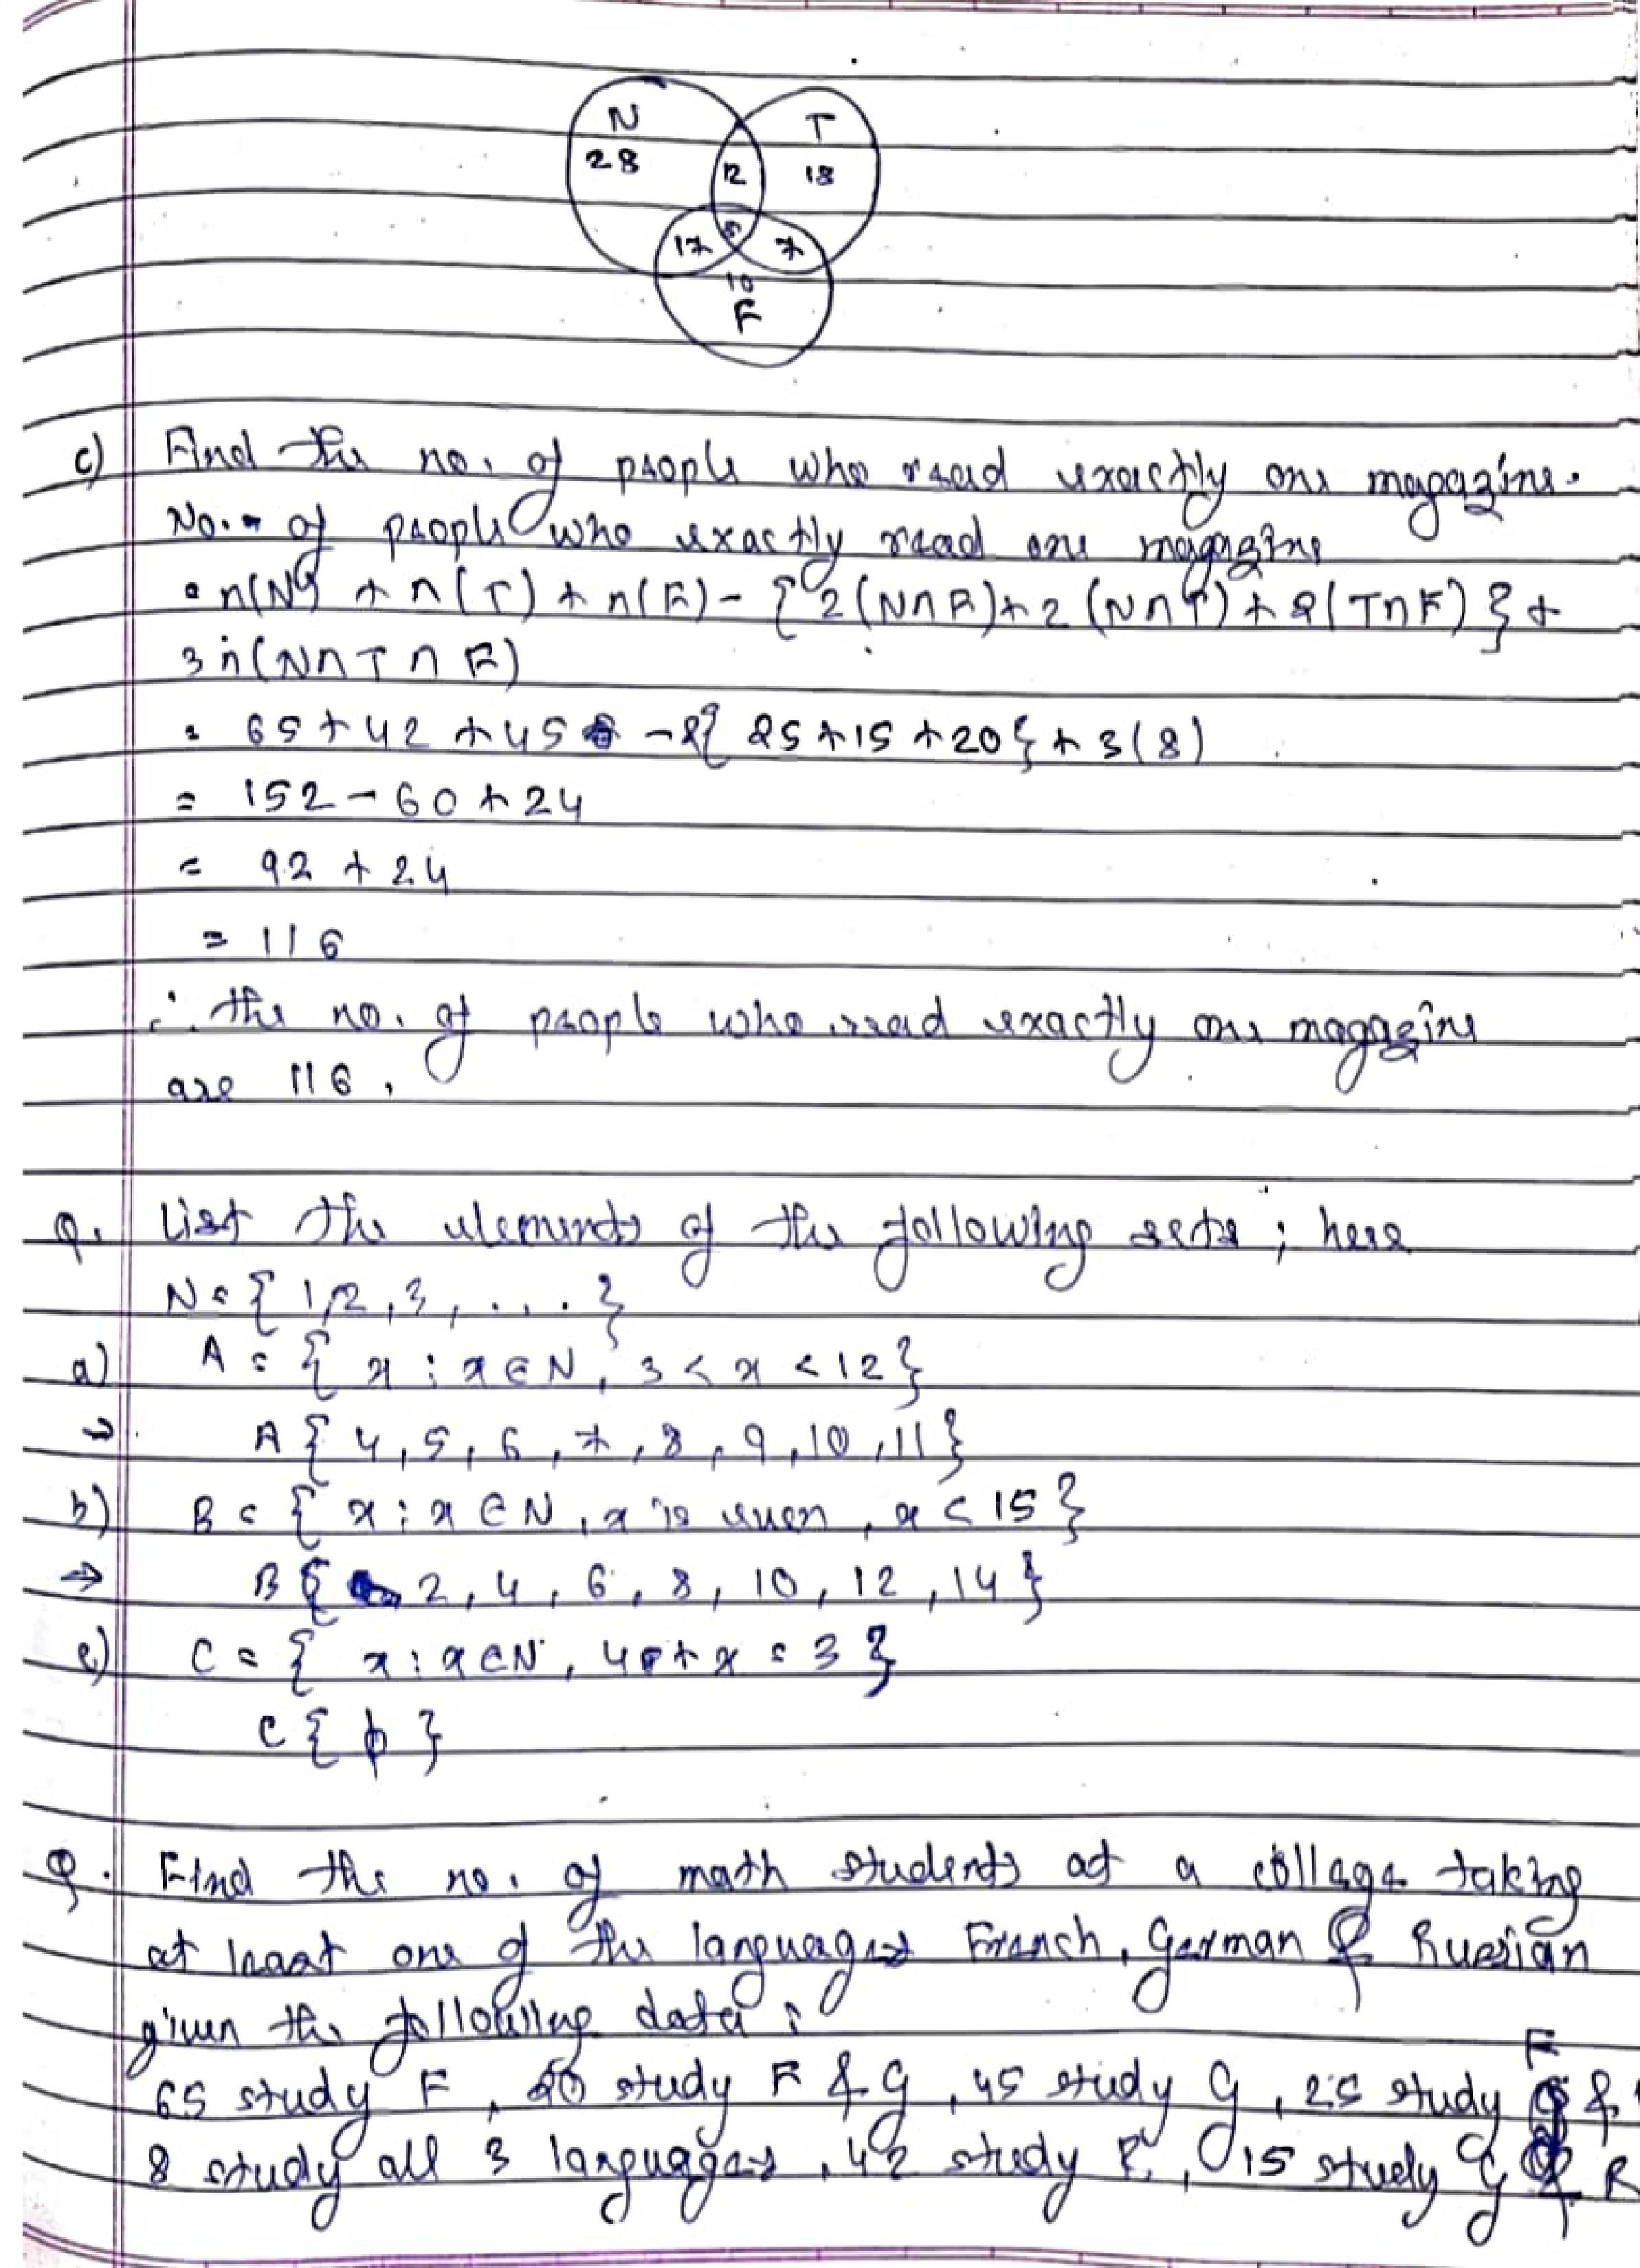 N T
28 12 18
17 8 7
10
F
c) Find the no. of people who read exactly one magazine.
No. of people who exactly read one magazine
= n(N) + n(T) + n(F) - {2(N∩F) + 2(N∩T) + 2(T∩F)} +
3n(N∩T∩F)
= 65 + 42 + 45 - 2{25 + 15 + 20} + 3(8)
= 152 - 60 + 24
= 92 + 24
= 116
∴ the no. of people who read exactly one magazine
are 116.
Q. List the elements of the following sets; here
N = {1,2,3,....}
a) A = {x : x ∈ N, 3 < x < 12}
⇒ A {4,5,6,7,8,9,10,11}
b) B = {x : x ∈ N, x is even, x < 15}
⇒ B { 2,4,6,8,10,12,14}
c) C = {x : x ∈ N, 4 + x = 3}
C {ϕ}
Q. Find the no. of math students at a collage taking
at least one of the languages French, German & Russian
given the following data:
65 study F, 20 study F & G, 45 study G, 25 study F &
8 study all 3 languages, 42 study R, 15 study G & R